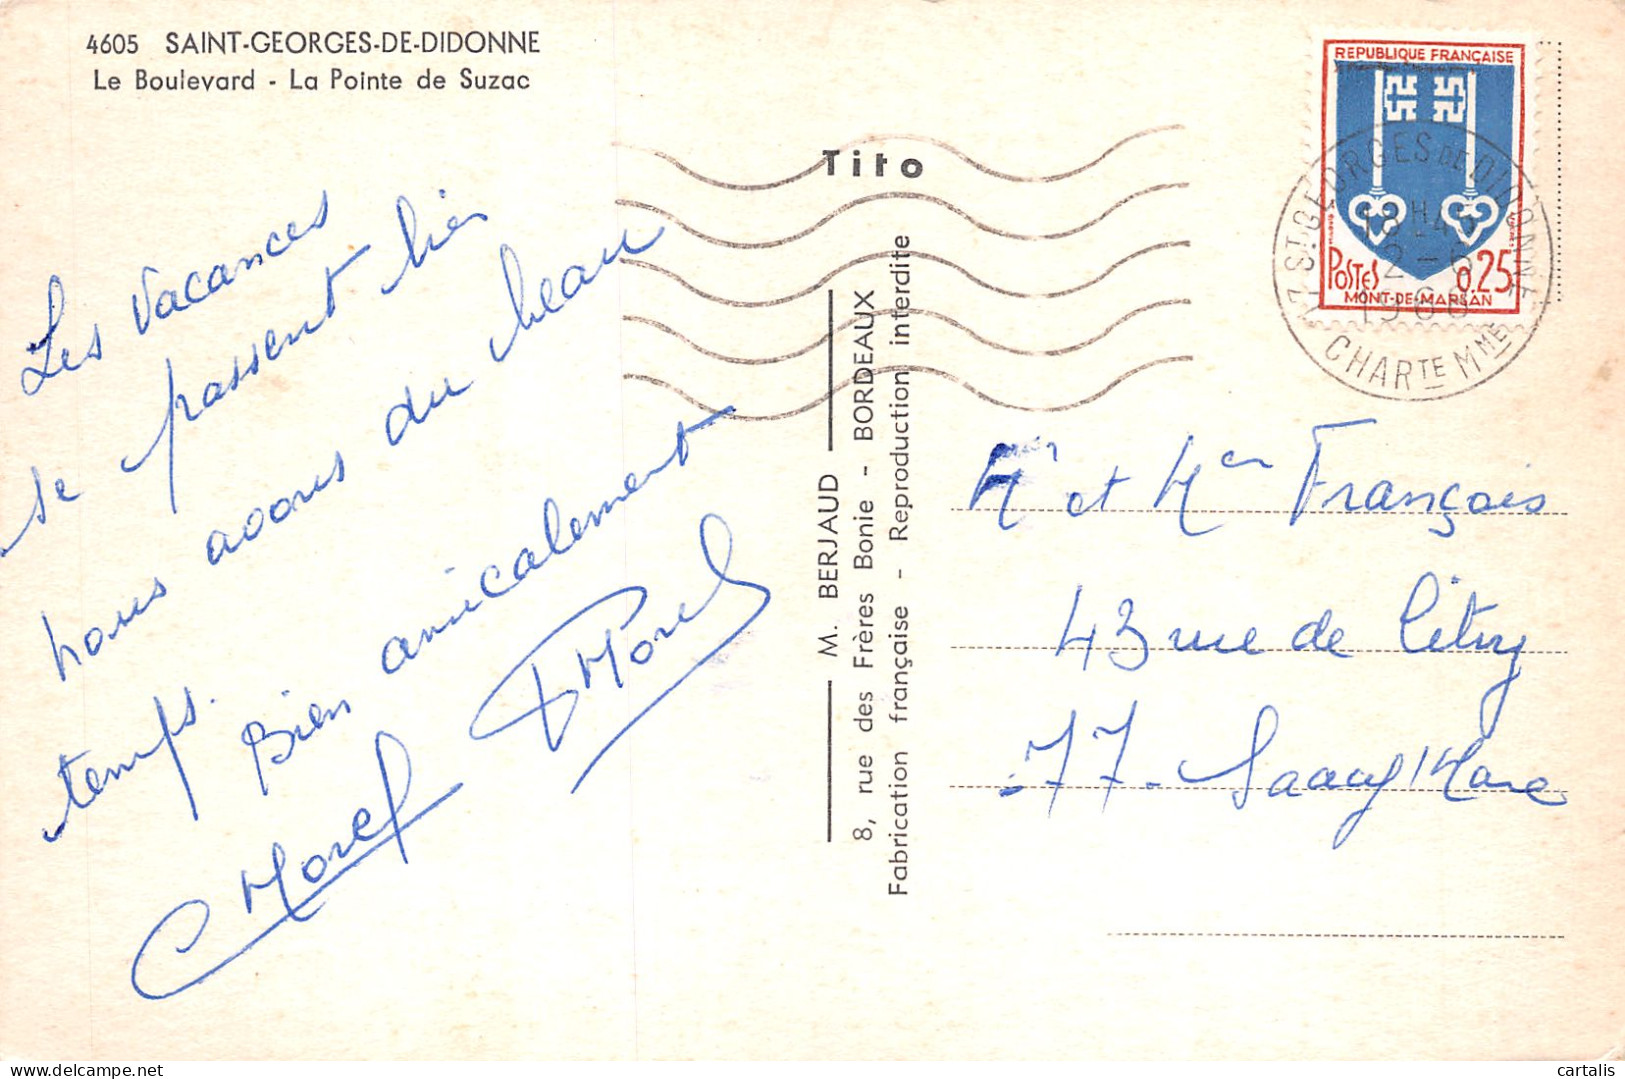 4605 SAINT-GEORGES-DE-DIDONNE
Le Boulevard - La Pointe de Suzac
Les vacances
se passent bien
nous avons du beau
temps.
Bien amicalement
CMorel
Morel
Tito
M. BERJAUD
8, rue des Frères Bonie - BORDEAUX
Fabrication française - Reproduction interdite
REPUBLIQUE FRANÇAISE
POSTES
0.25
MONT-DE-MARSAN
17 ST GEORGES DE DIDONNE
18H45
2-6
1968
CHARTE MME
Mr et Mme François
43 rue de Citry
77. Saacy/Marne
cartalis
delcampe.net